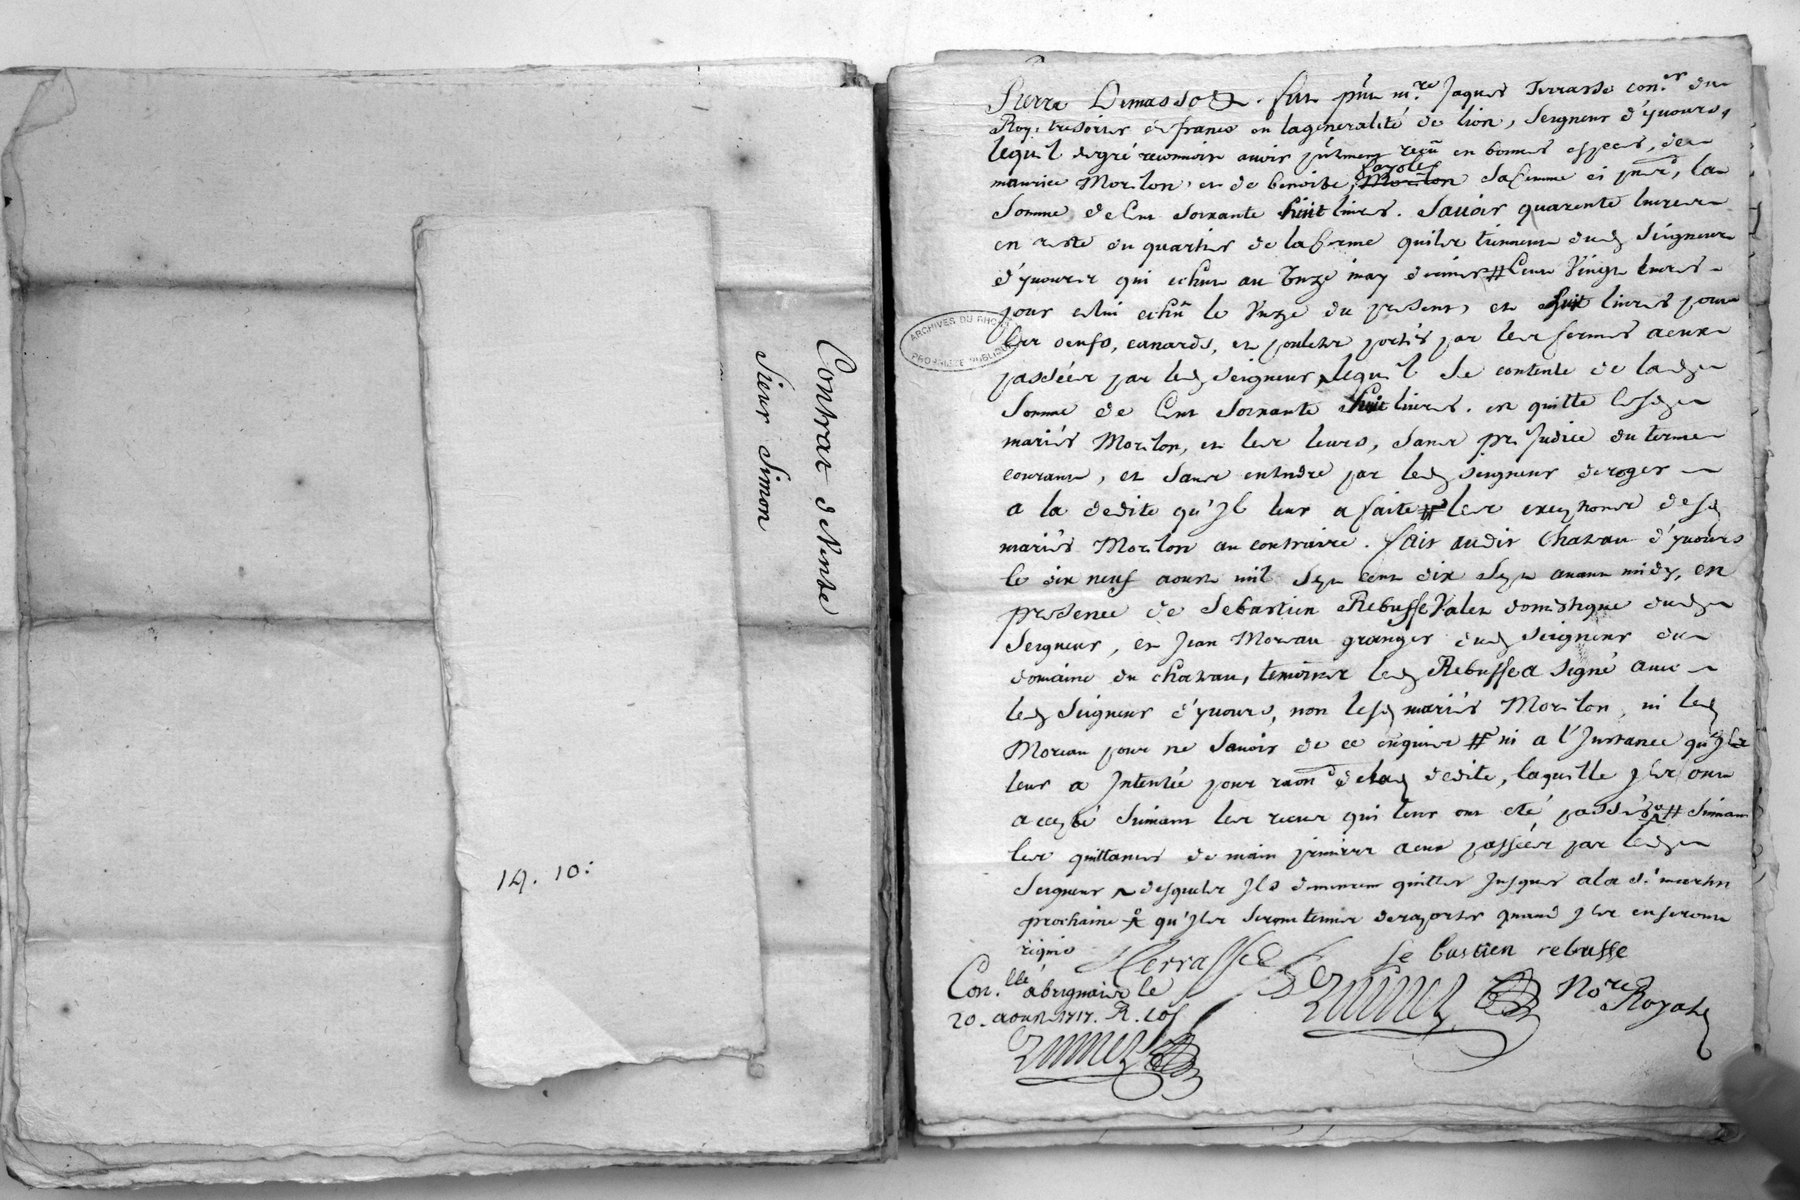 Contrat de Vente
Sieur Simon
14. 10:
Pierre Demasso fut pnt m.re Jaques Terrasse con.er du
Roy, tresorier de france en lageneralité de lion, Seigneur d'yvours,
lequel degré reconnoit avoir pntment reçu en bonnes especes, de
Payole
maurice Morilon, et de benoite, Morilon Safemme ci pnts, la
Somme de Cent Soixante huit livres. Savoir quarente livres
en reste du quartier de laferme quiles tiennent dud Seigneur
d'yvours qui echut au Unze may dernier # Cent Vingt livres
pour celui echu le Unze du present, et huit livres pour
les oeufs, canards, et poulets portés par les fermes aeux
passées par led Seigneur, lequel Se contente de lad
Somme de Cent Soixante huit livres. et quitte lesd
mariés Morilon, et les leurs, Sans prejudice du terme
courant, et Sans entendre par led Seigneur deroger
a la dedite qu'Jl leur a faite # les exceptions desd
mariés Morilon au contraire. fait audit Chateau d'yvours
le dix neuf aoust mil Sept cent dix Sept avant midy, en
presence de Sebastien Rebuffe Valet domestique dud
Seigneur, et Jean Moreau granger dud Seigneur du
domaine du chateau, temoins led Rebuffe a Signé avec
led Seigneur d'yvours, non lesd mariés Morilon, ni led
Moreau pour ne Savoir de ce enquis # ni a l'Jnstance qu'Jl
leur a Jntentée pour raon delad dedite, laquelle Jls ont
accepté Suivant les recus qui leur ont eté passés # Suivant
les quittances de main privée aeux passées par led
Seigneur desquels Jls demeurent quittes Jusques ala S.t martin
prochaine qu'Jls Seront tenus deraporter quand Jls en Seront
requis
Terrasse
Se bastien rebuffe
Con.llé abrignais le
20. aoust 1717. R. 10s
No.re Royal
ARCHIVES DU RHONE
PROPRIETE PUBLIQUE